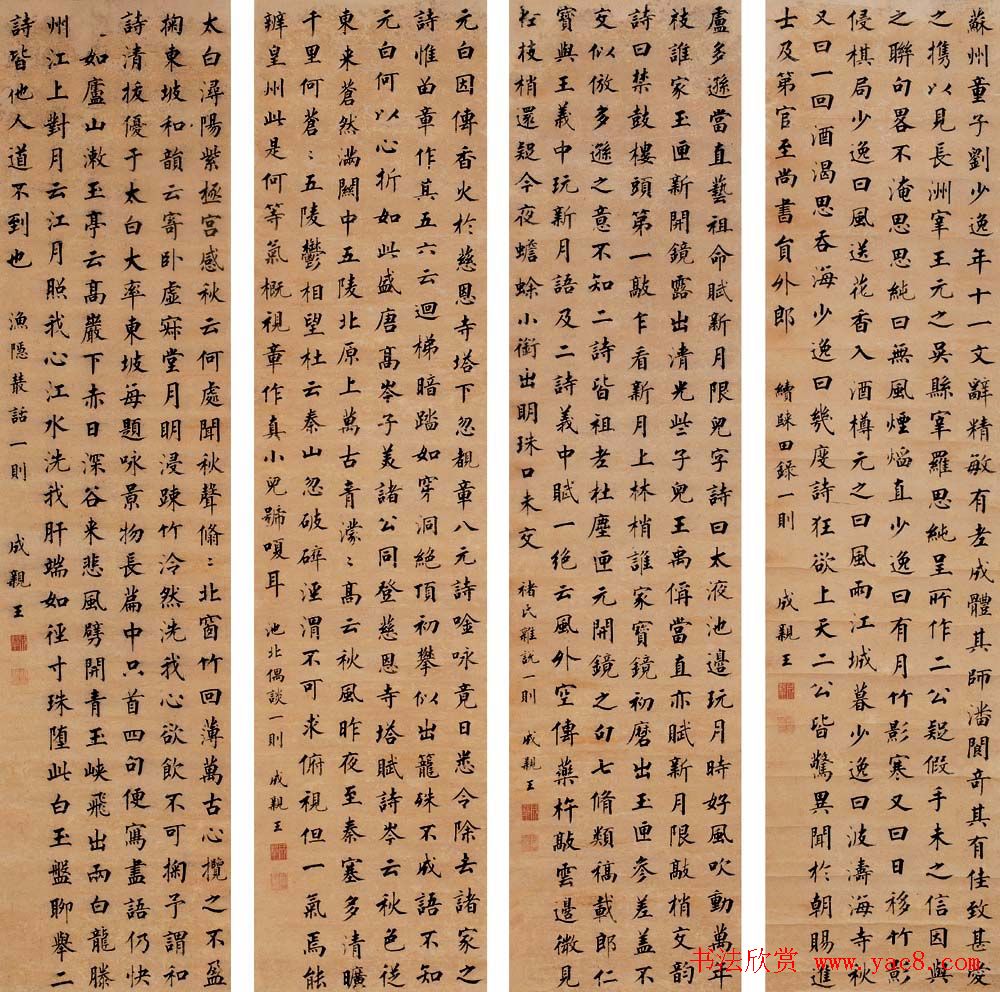 蘇州童子劉少逸年十一文辭精敏有老成體其師潘閬奇其有佳致甚愛
之攜以見長洲宰王元之吳縣宰羅思純呈所作二公疑假手未之信因與
之聯句畧不淹思思純曰無風煙焰直少逸曰有月竹影寒又曰日移竹影
侵棋局少逸曰風送花香入酒樽元之曰風雨江城暮少逸曰波濤海寺秋
又曰一回酒渴思吞海少逸曰幾度詩狂欲上天二公皆驚異聞於朝賜進
士及第官至尚書員外郎 續歸田錄一則 成親王
盧多遜當直藝祖命賦新月限兒字詩曰太液池邊玩月時好風吹動萬年
枝誰家玉匣新開鏡露出清光些子兒王禹偁當直亦賦新月限敲梢交韻
詩曰禁鼓樓頭第一敲乍看新月上林梢誰家寶鏡初磨出玉匣參差蓋不
交似倣多遜之意不知二詩皆祖老杜塵匣元開鏡之句七脩類稿載郎仁
寶與王義中玩新月語及二詩義中賦一絕云風外空傳藥杵敲雲邊微見
桂枝梢還疑今夜蟾蜍小銜出明珠口未交 褚氏雜說一則 成親王
元白因傳香火於慈恩寺塔下忽覩章八元詩唫咏竟日悉令除去諸家之
詩惟留章作其五六云迴梯暗踏如穿洞絕頂初攀似出籠殊不成語不知
元白何以心折如此盛唐高岑子美諸公同登慈恩寺塔賦詩岑云秋色從
東来蒼然滿關中五陵北原上萬古青濛〻高云秋風昨夜至秦塞多清曠
千里何蒼〻五陵鬱相望杜云秦山忽破碎涇渭不可求俯視但一氣焉能
辨皇州此是何等氣概視章作真小兒號嗄耳 池北偶談一則 成親王
太白潯陽紫極宮感秋云何處聞秋聲翛〻北窗竹回薄萬古心攬之不盈
掬東坡和韻云寄卧虛寂堂月明浸疎竹泠然洗我心欲飲不可掬予謂和
詩清拔優于太白大率東坡每題咏景物長篇中只首四句便寫盡語仍快
〻如廬山漱玉亭云高巖下赤日深谷来悲風劈開青玉峽飛出兩白龍滕
州江上對月云江月照我心江水洗我肝端如徑寸珠墮此白玉盤聊舉二
詩皆他人道不到也 漁隱叢話一則 成親王
书法欣赏 www.yac8.com